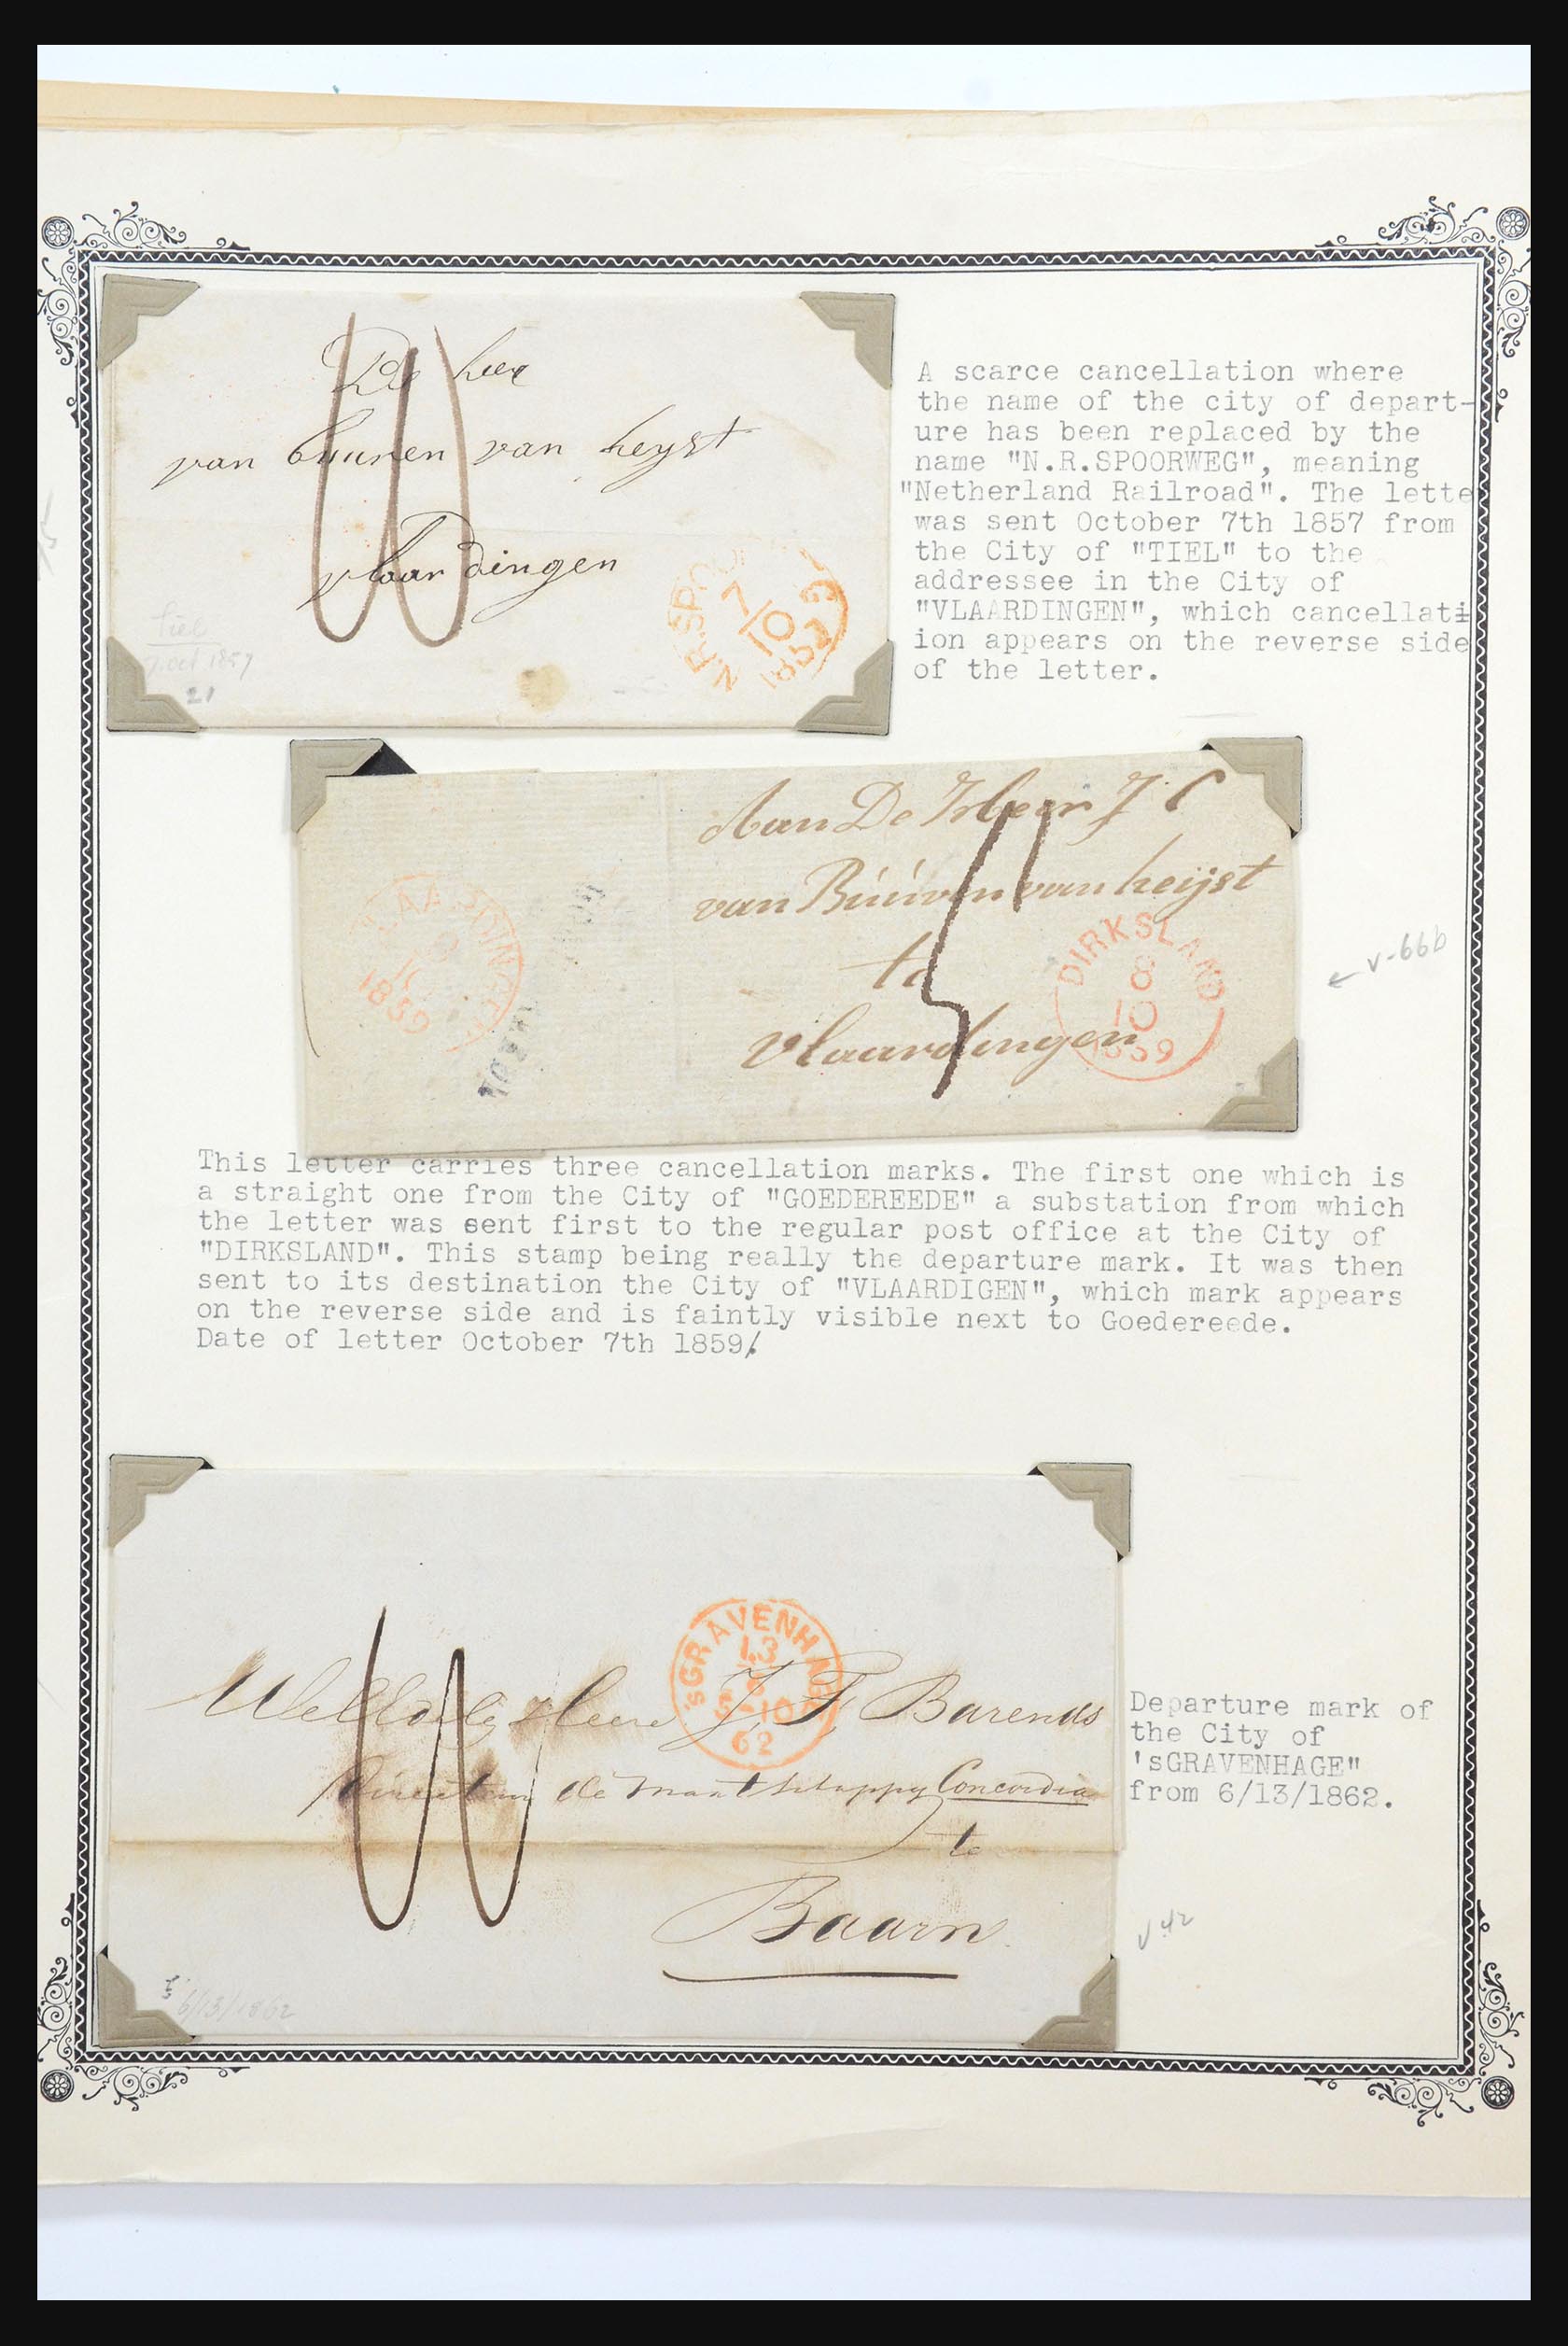 De heer
van buuren van heyst
vlaardingen
N.R.SPOO
7
10
1857
Tiel
7 oct 1857
21
A scarce cancellation where
the name of the city of depart-
ure has been replaced by the
name "N.R.SPOORWEG", meaning
"Netherland Railroad". The lette
was sent October 7th 1857 from
the City of "TIEL" to the
addressee in the City of
"VLAARDINGEN", which cancellati
ion appears on the reverse side
of the letter.
Aan De Heer J C
van Buuren van heijst
te
Vlaardingen
DIRKSLAND
8
10
1859
VLAARDINGEN
1859
v-66b
This letter carries three cancellation marks. The first one which is
a straight one from the City of "GOEDEREEDE" a substation from which
the letter was sent first to the regular post office at the City of
"DIRKSLAND". This stamp being really the departure mark. It was then
sent to its destination the City of "VLAARDIGEN", which mark appears
on the reverse side and is faintly visible next to Goedereede.
Date of letter October 7th 1859.
'sGRAVENHAGE
13
6
5-10
62
Heere J. F. Barends
Directeur de Maatschappy Concordia
te
Baarn
6/13/1862
Departure mark of
the City of
'sGRAVENHAGE"
from 6/13/1862.
v 42